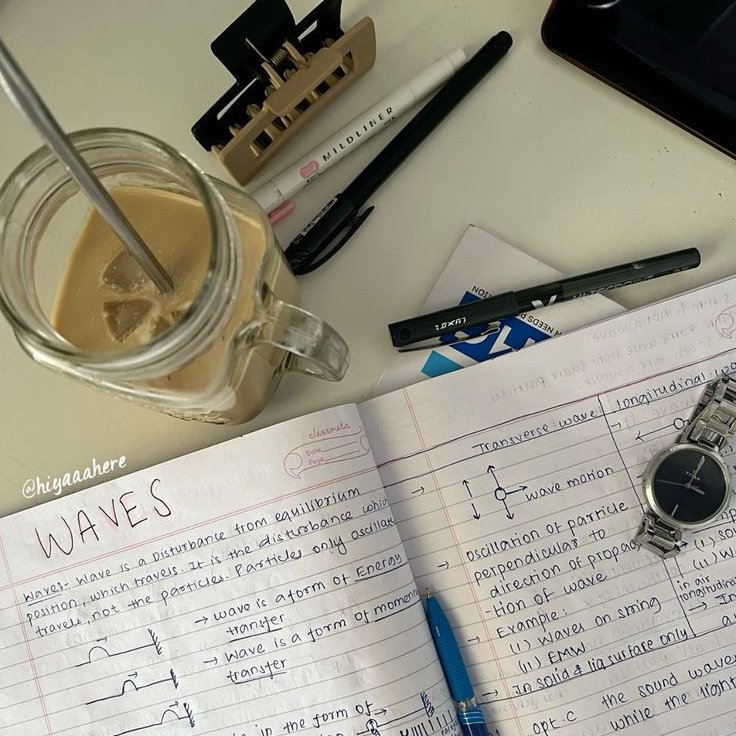 MILDLINER
LUXOR
N NEEDS P
TION
@hiyaaahere
classmate
Date
Page
WAVES
Waves- Wave is a Disturbance from equilibrium
position, which travels. It is the disturbance which
travels, not the particles. Particles only oscillate
→ wave is a form of Energy
transfer
→ Wave is a form of momen
transfer
in the form of
Transverse wave
longitudinal
→
wave motion
→ oscillation of particle
perpendicular to
direction of propag
-tion of wave
→ Example:
(i) Waves on string
(ii) EMW
→ In solid & liq surface only
(i) so
(ii) w
in air
longitudinal
→ In
a
opt.c the sound waves
while the light